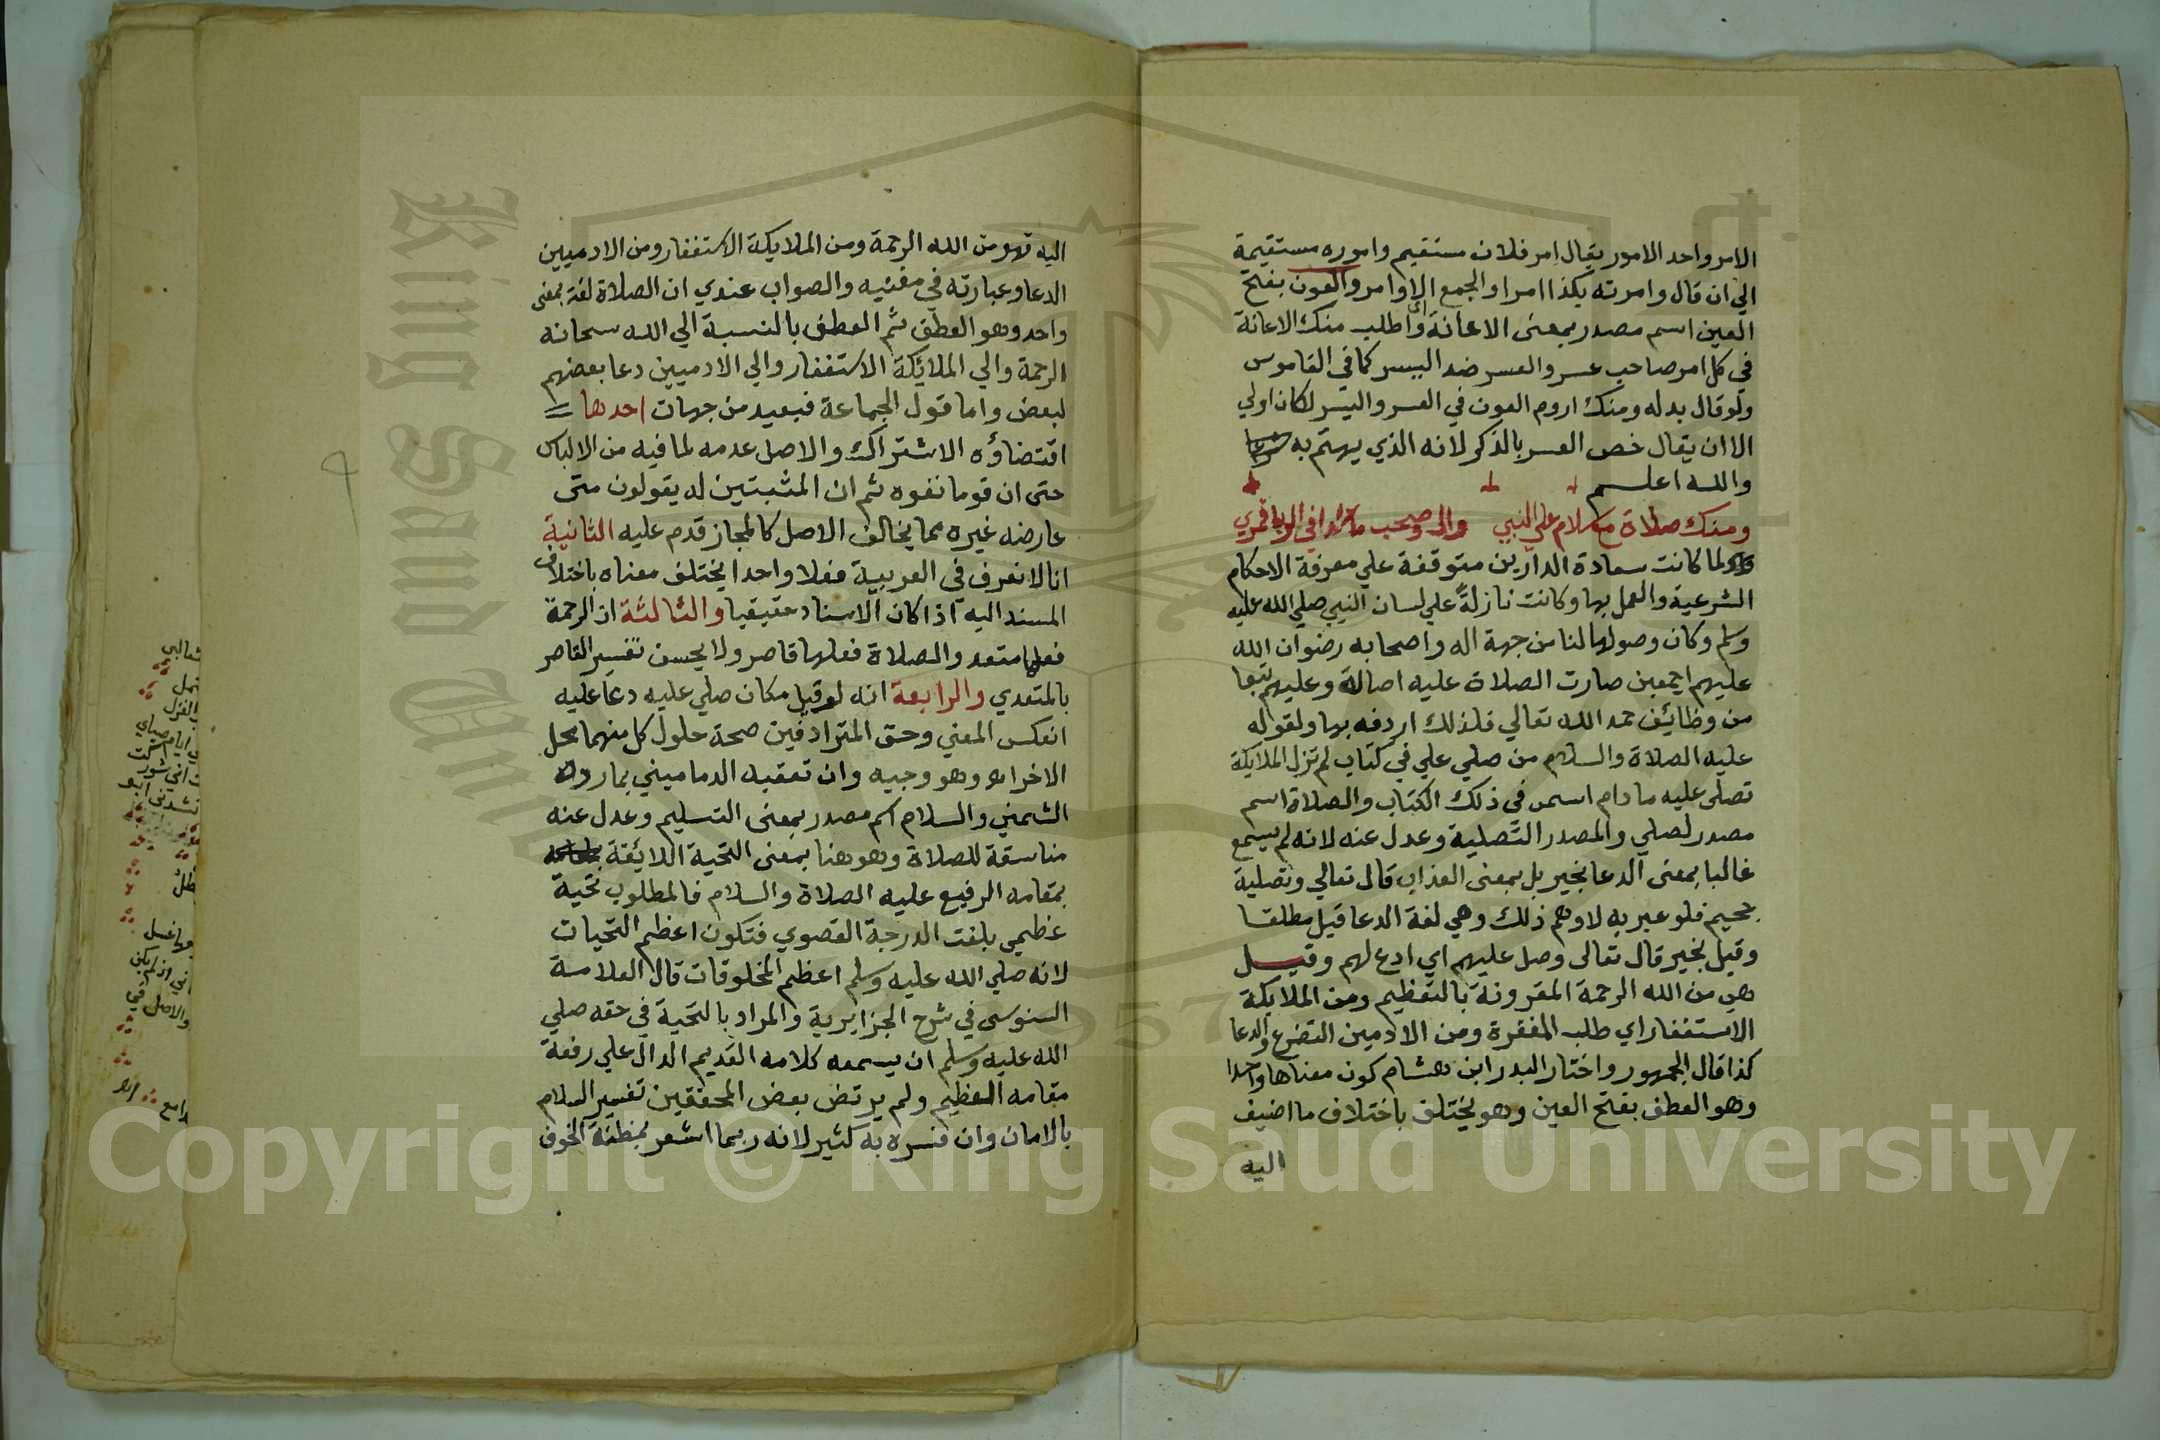 الامر واحد الامور يقال امر فلان مستقيم واموره مستقيمة
الي ان قال وامرته بكذا امرا والجمع الاوامر والعون بفتح
العين اسم مصدر بمعنى الاعانة اي اطلب منك الاعانة
في كل امر صاحب عسر والعسر ضد اليسر كما في القاموس
ولو قال بدله ومنك اروم العون في العسر واليسر لكان اولي
الا ان يقال خص العسر بالذكر لانه الذي يهتم به
والله اعلم
ومنك صلاة مع سلام علي النبي وال وصحب ما في الربا قمري
ولما كانت سعادة الدارين متوقفة علي معرفة الاحكام
الشرعية والعمل بها وكانت نازلة علي لسان النبي صلي الله عليه
وسلم وكان وصولها لنا من جهة اله واصحابه رضوان الله
عليهم اجمعين صارت الصلاة عليه اصالة وعليهم تبعا
من وظائف حمد الله تعالي فلذلك اردفه بها ولقوله
عليه الصلاة والسلام من صلي علي في كتاب لم تزل الملايكة
تصلي عليه ما دام اسمي في ذلك الكتاب والصلاة اسم
مصدر لصلي والمصدر التصلية وعدل عنه لانه لم يسمع
غالبا بمعنى الدعا بخير بل بمعنى العذاب قال تعالي وتصلية
جحيم فلو عبر به لاوهم ذلك وهي لغة الدعا قيل مطلقا
وقيل بخير قال تعالى وصل عليهم اي ادع لهم وقيل
هي من الله الرحمة المقرونة بالتعظيم ومن الملايكة
الاستغفار اي طلب المغفرة ومن الادمين التضرع والدعا
كذا قال الجمهور واختار البدر ابن هشام كون معناها واحدا
وهو العطف بفتح العين وهو يختلف باختلاف ما اضيف
اليه
اليه فهو من الله الرحمة ومن الملايكة الاستغفار ومن الادميين
الدعا وعبارته في مغنيه والصواب عندي ان الصلاة لغة بمعنى
واحد وهو العطف ثم العطف بالنسبة الي الله سبحانه
الرحمة والي الملائكة الاستغفار والي الادميين دعا بعضهم
لبعض واما قول الجماعة فبعيد من جهات احدها
اقتضاؤه الاشتراك والاصل عدمه لما فيه من الالباس
حتى ان قوما نفوه ثم ان المثبتين له يقولون متى
عارضه غيره مما يخالف الاصل كالمجاز قدم عليه الثانية
انا لا نعرف في العربية فعلا واحدا يختلف معناه باختلاف
المسند اليه اذا كان الاسناد حقيقيا والثالثة ان الرحمة
فعلها متعد والصلاة فعلها قاصر ولا يحسن تفسير القاصر
بالمتعدي والرابعة انه لو قيل مكان صلي عليه دعا عليه
انعكس المعني وحق المترادفين صحة حلول كل منهما محل
الاخر اه وهو وجيه وان تعقبه الدماميني بما رده
الشمني والسلام اسم مصدر بمعنى التسليم وعدل عنه
مناسقة للصلاة وهو هنا بمعنى التحية اللائقة
بمقامه الرفيع عليه الصلاة والسلام فالمطلوب تحية
عظمي بلغت الدرجة القصوي فتكون اعظم التحيات
لانه صلي الله عليه وسلم اعظم المخلوقات قال العلامة
السنوسي في شرح الجزايرية والمراد بالتحية في حقه صلي
الله عليه وسلم ان يسمعه كلامه القديم الدال علي رفعة
مقامه العظيم ولم يرتض بعض المحققين تفسير السلام
بالامان وان فسره به كثير لانه ربما اشعر بمظنة الخوف
Copyright © King Saud University
King Saud University